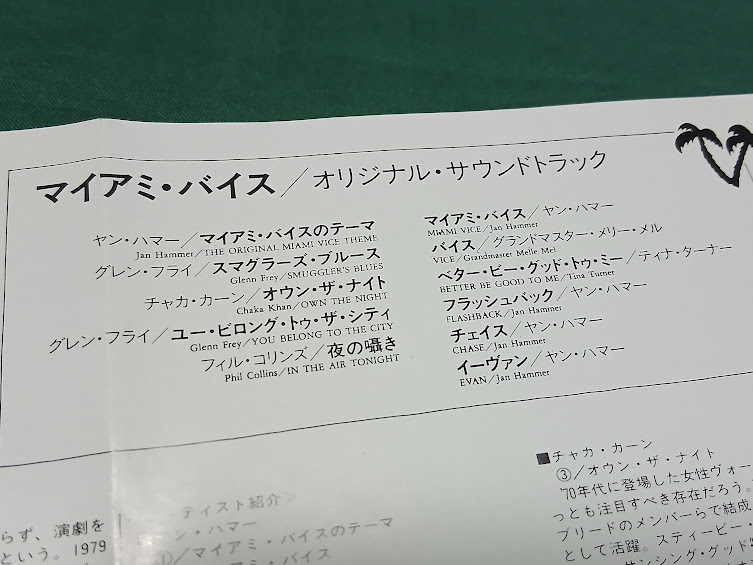 マイアミ・バイス／オリジナル・サウンドトラック
ヤン・ハマー／マイアミ・バイスのテーマ
Jan Hammer／THE ORIGINAL MIAMI VICE THEME
グレン・フライ／スマグラーズ・ブルース
Glenn Frey／SMUGGLER'S BLUES
チャカ・カーン／オウン・ザ・ナイト
Chaka Khan／OWN THE NIGHT
グレン・フライ／ユー・ビロング・トゥ・ザ・シティ
Glenn Frey／YOU BELONG TO THE CITY
フィル・コリンズ／夜の囁き
Phil Collins／IN THE AIR TONIGHT
マイアミ・バイス／ヤン・ハマー
MIAMI VICE／Jan Hammer
バイス／グランドマスター・メリー・メル
VICE／Grandmaster Melle Mel
ベター・ビー・グッド・トゥ・ミー／ティナ・ターナー
BETTER BE GOOD TO ME／Tina Turner
フラッシュバック／ヤン・ハマー
FLASHBACK／Jan Hammer
チェイス／ヤン・ハマー
CHASE／Jan Hammer
イーヴァン／ヤン・ハマー
EVAN／Jan Hammer
らず、演劇を
という。1979
ティスト紹介＞
ン・ハマー
／マイアミ・バイスのテーマ
／マイアミ・バイス
■チャカ・カーン
③／オウン・ザ・ナイト
'70年代に登場した女性ヴォー
っとも注目すべき存在だろう。
ブリードのメンバーらで結成
として活躍。スティービー・
サンシング・グッド